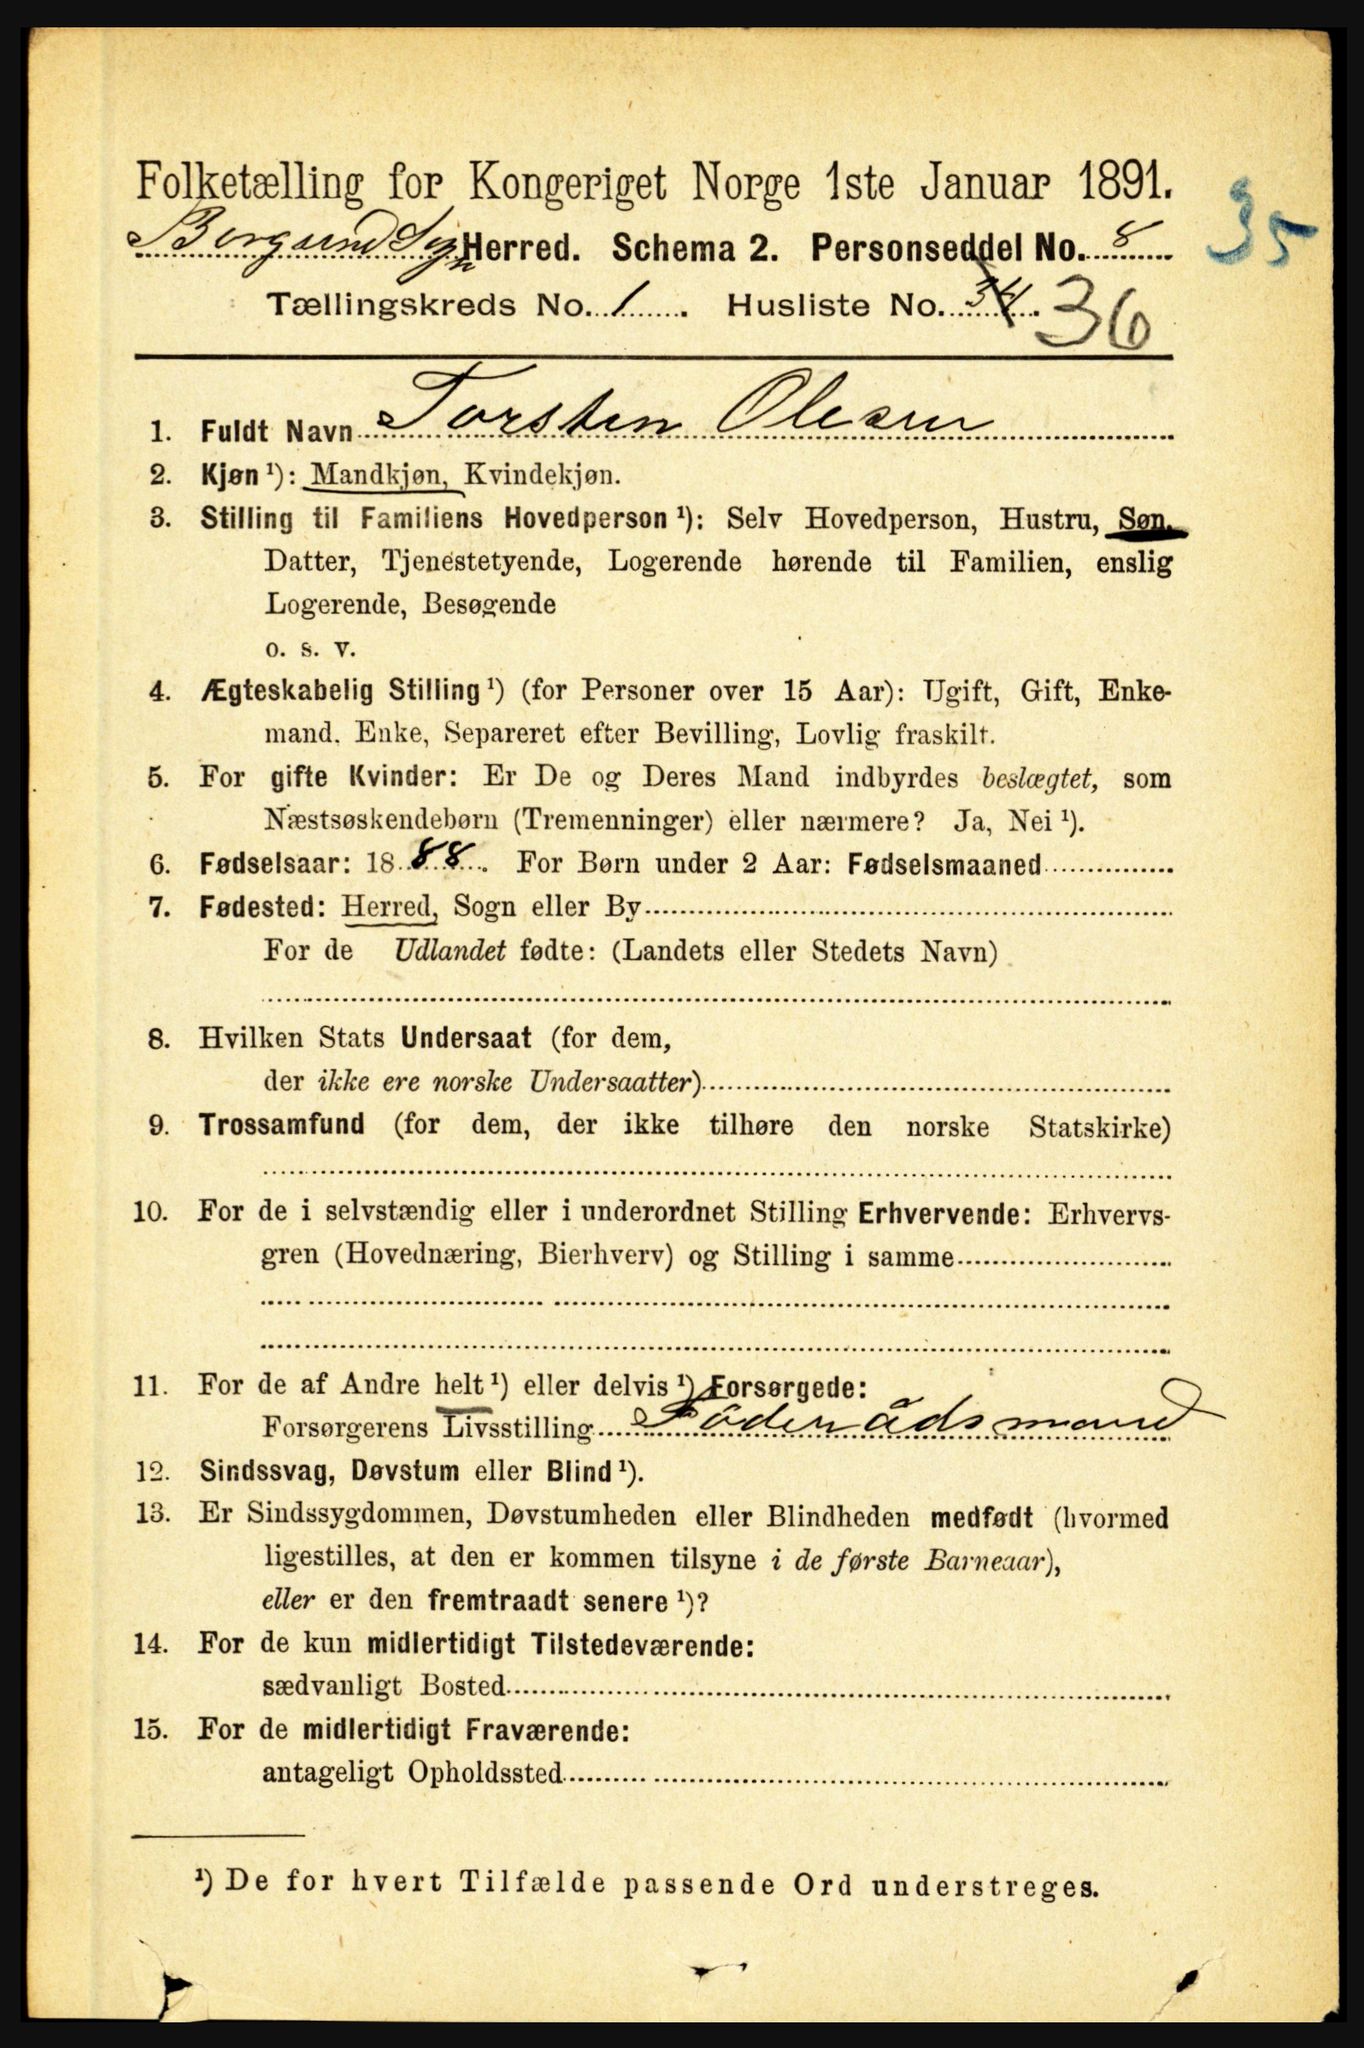 Folketælling for Kongeriget Norge 1ste Januar 1891.
35
Borgund Sogn Herred. Schema 2. Personseddel No. 8
Tællingskreds No. 1. Husliste No. 34. 36
1. Fuldt Navn Torsten Olesen
2. Kjøn¹): Mandkjøn, Kvindekjøn.
3. Stilling til Familiens Hovedperson¹): Selv Hovedperson, Hustru, Søn,
Datter, Tjenestetyende, Logerende hørende til Familien, enslig
Logerende, Besøgende
o. s. v.
4. Ægteskabelig Stilling¹) (for Personer over 15 Aar): Ugift, Gift, Enke-
mand, Enke, Separeret efter Bevilling, Lovlig fraskilt.
5. For gifte Kvinder: Er De og Deres Mand indbyrdes beslægtet, som
Næstsøskendebørn (Tremenninger) eller nærmere? Ja, Nei¹).
6. Fødselsaar: 1888. For Børn under 2 Aar: Fødselsmaaned
7. Fødested: Herred, Sogn eller By
For de Udlandet fødte: (Landets eller Stedets Navn)
8. Hvilken Stats Undersaat (for dem,
der ikke ere norske Undersaatter)
9. Trossamfund (for dem, der ikke tilhøre den norske Statskirke)
10. For de i selvstændig eller i underordnet Stilling Erhvervende: Erhvervs-
gren (Hovednæring, Bierhverv) og Stilling i samme
11. For de af Andre helt¹) eller delvis¹) Forsørgede:
Forsørgerens Livsstilling Föderådsmand
12. Sindssvag, Døvstum eller Blind¹).
13. Er Sindssygdommen, Døvstumheden eller Blindheden medfødt (hvormed
ligestilles, at den er kommen tilsyne i de første Barneaar),
eller er den fremtraadt senere¹)?
14. For de kun midlertidigt Tilstedeværende:
sædvanligt Bosted
15. For de midlertidigt Fraværende:
antageligt Opholdssted
¹) De for hvert Tilfælde passende Ord understreges.